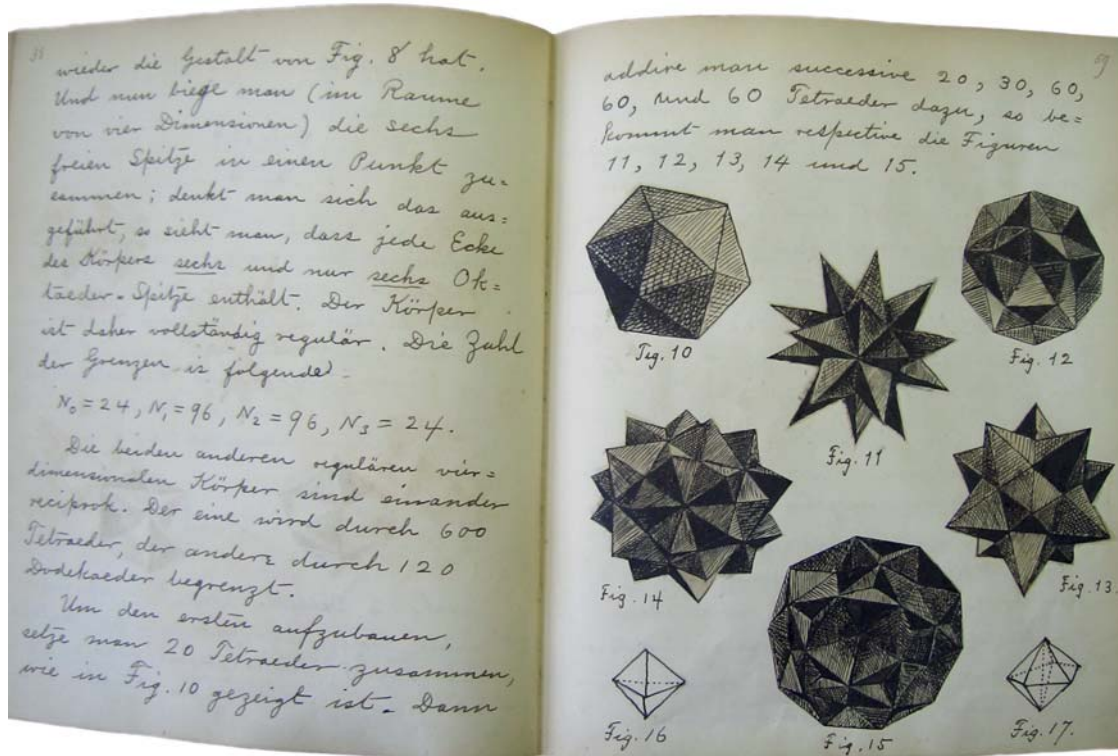 wieder die Gestalt von Fig. 8 hat.
Und nun biege man (im Raume
von vier Dimensionen) die sechs
freien Spitze in einen Punkt zu=
sammen; denkt man sich das aus=
geführt, so sieht man, dass jede Ecke
des Körpers sechs und nur sechs Ok=
taeder-Spitze enthält. Der Körper
ist daher vollständig regulär. Die Zahl
der Grenzen is folgende
N₀ = 24, N₁ = 96, N₂ = 96, N₃ = 24.
Die beiden anderen regulären vier=
dimensionalen Körper sind einander
reciprok. Der eine wird durch 600
Tetraeder, der andere durch 120
Dodekaeder begrenzt.
Um den ersten aufzubauen,
setze man 20 Tetraeder zusammen,
wie in Fig. 10 gezeigt ist. Dann
59
addire man successive 20, 30, 60,
60, und 60 Tetraeder dazu, so be=
kommt man respective die Figuren
11, 12, 13, 14 und 15.
Fig. 10
Fig. 11
Fig. 12
Fig. 14
Fig. 13.
Fig. 16
Fig. 15
Fig. 17.